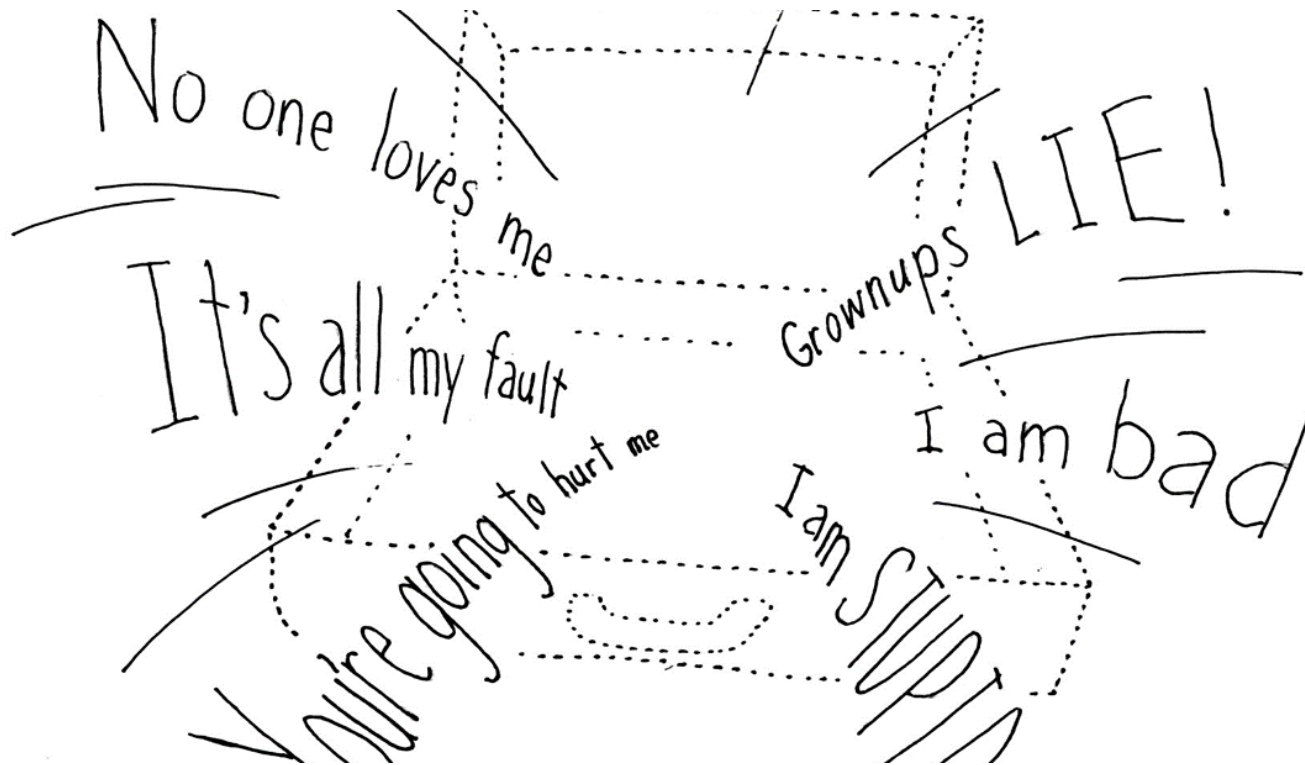 No one loves me
Grownups LIE!
It's all my fault
I am bad
You're going to hurt me
I am STUPID